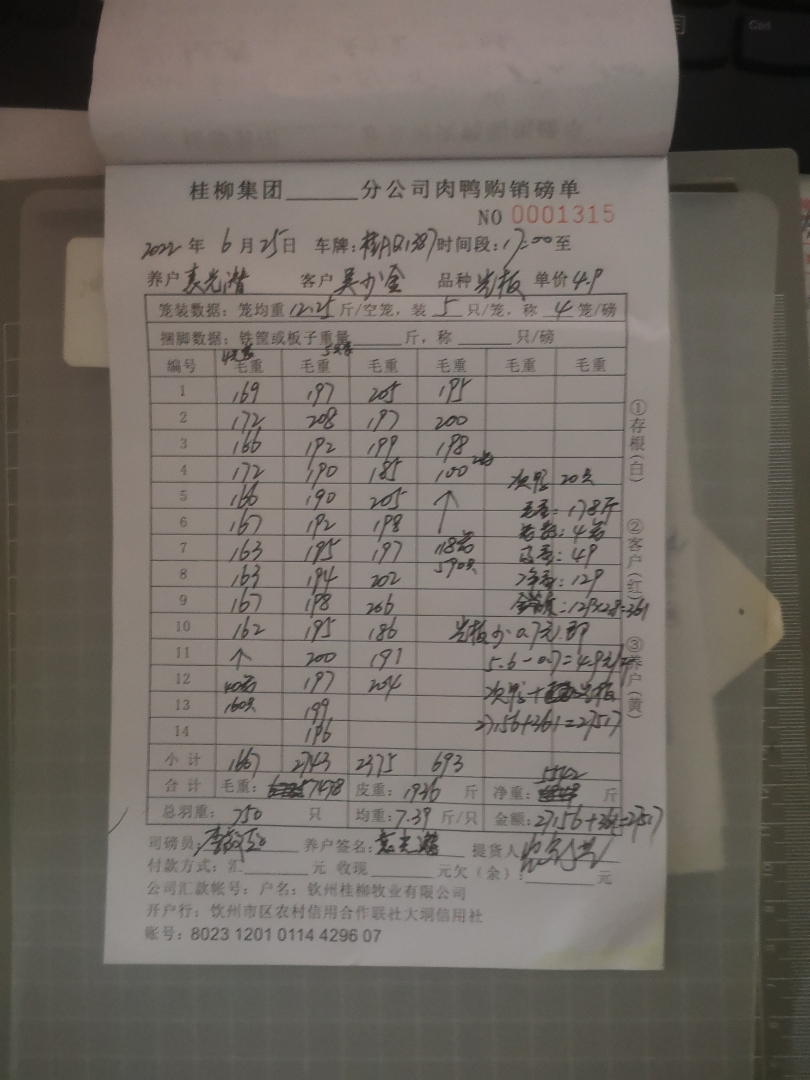 桂柳集团______分公司肉鸭购销磅单
NO 0001315
2022年 6月25日 车牌:桂AQ1387 时间段:17:00至
养户 袁光潜 客户 吴少金 品种 光板 单价 4.9
笼装数据:笼均重 12.25 斤/空笼,装 5 只/笼,称 4 笼/磅
捆脚数据:铁筐或板子重量______斤,称______只/磅
编号 毛重 毛重 毛重 毛重 毛重 毛重
1 169 197 205 195
2 172 208 197 200
3 166 192 199 198
4 172 190 185 100 2笼 次鸭 20只
5 166 190 205 ↑ 毛重:178斤
6 167 192 198 笼数:4笼
7 163 195 197 118笼 皮重:49
8 163 194 202 590只 净重:129
9 167 198 206 129×2.8=361
10 162 195 186 光板少0.7元
11 ↑ 200 191 5.6-0.7=4.9元/斤
12 40笼 197 204 次鸭+光板
13 160只 199 27156+361=27517
14 196
小计 1667 2743 2375 693
合计 毛重:7478 皮重:1936 斤 净重:5542 斤
总羽重:750 只 均重:7.39 斤/只 金额:27156+361=27517
司磅员: 养户签名:袁光潜 提货人
付款方式:汇______元 收现______元欠(余):______元
公司汇款帐号:户名:钦州桂柳牧业有限公司
开户行:钦州市区农村信用合作联社大垌信用社
账号:8023 1201 0114 4296 07
①存根(白)
②客户(红)
③养户(黄)